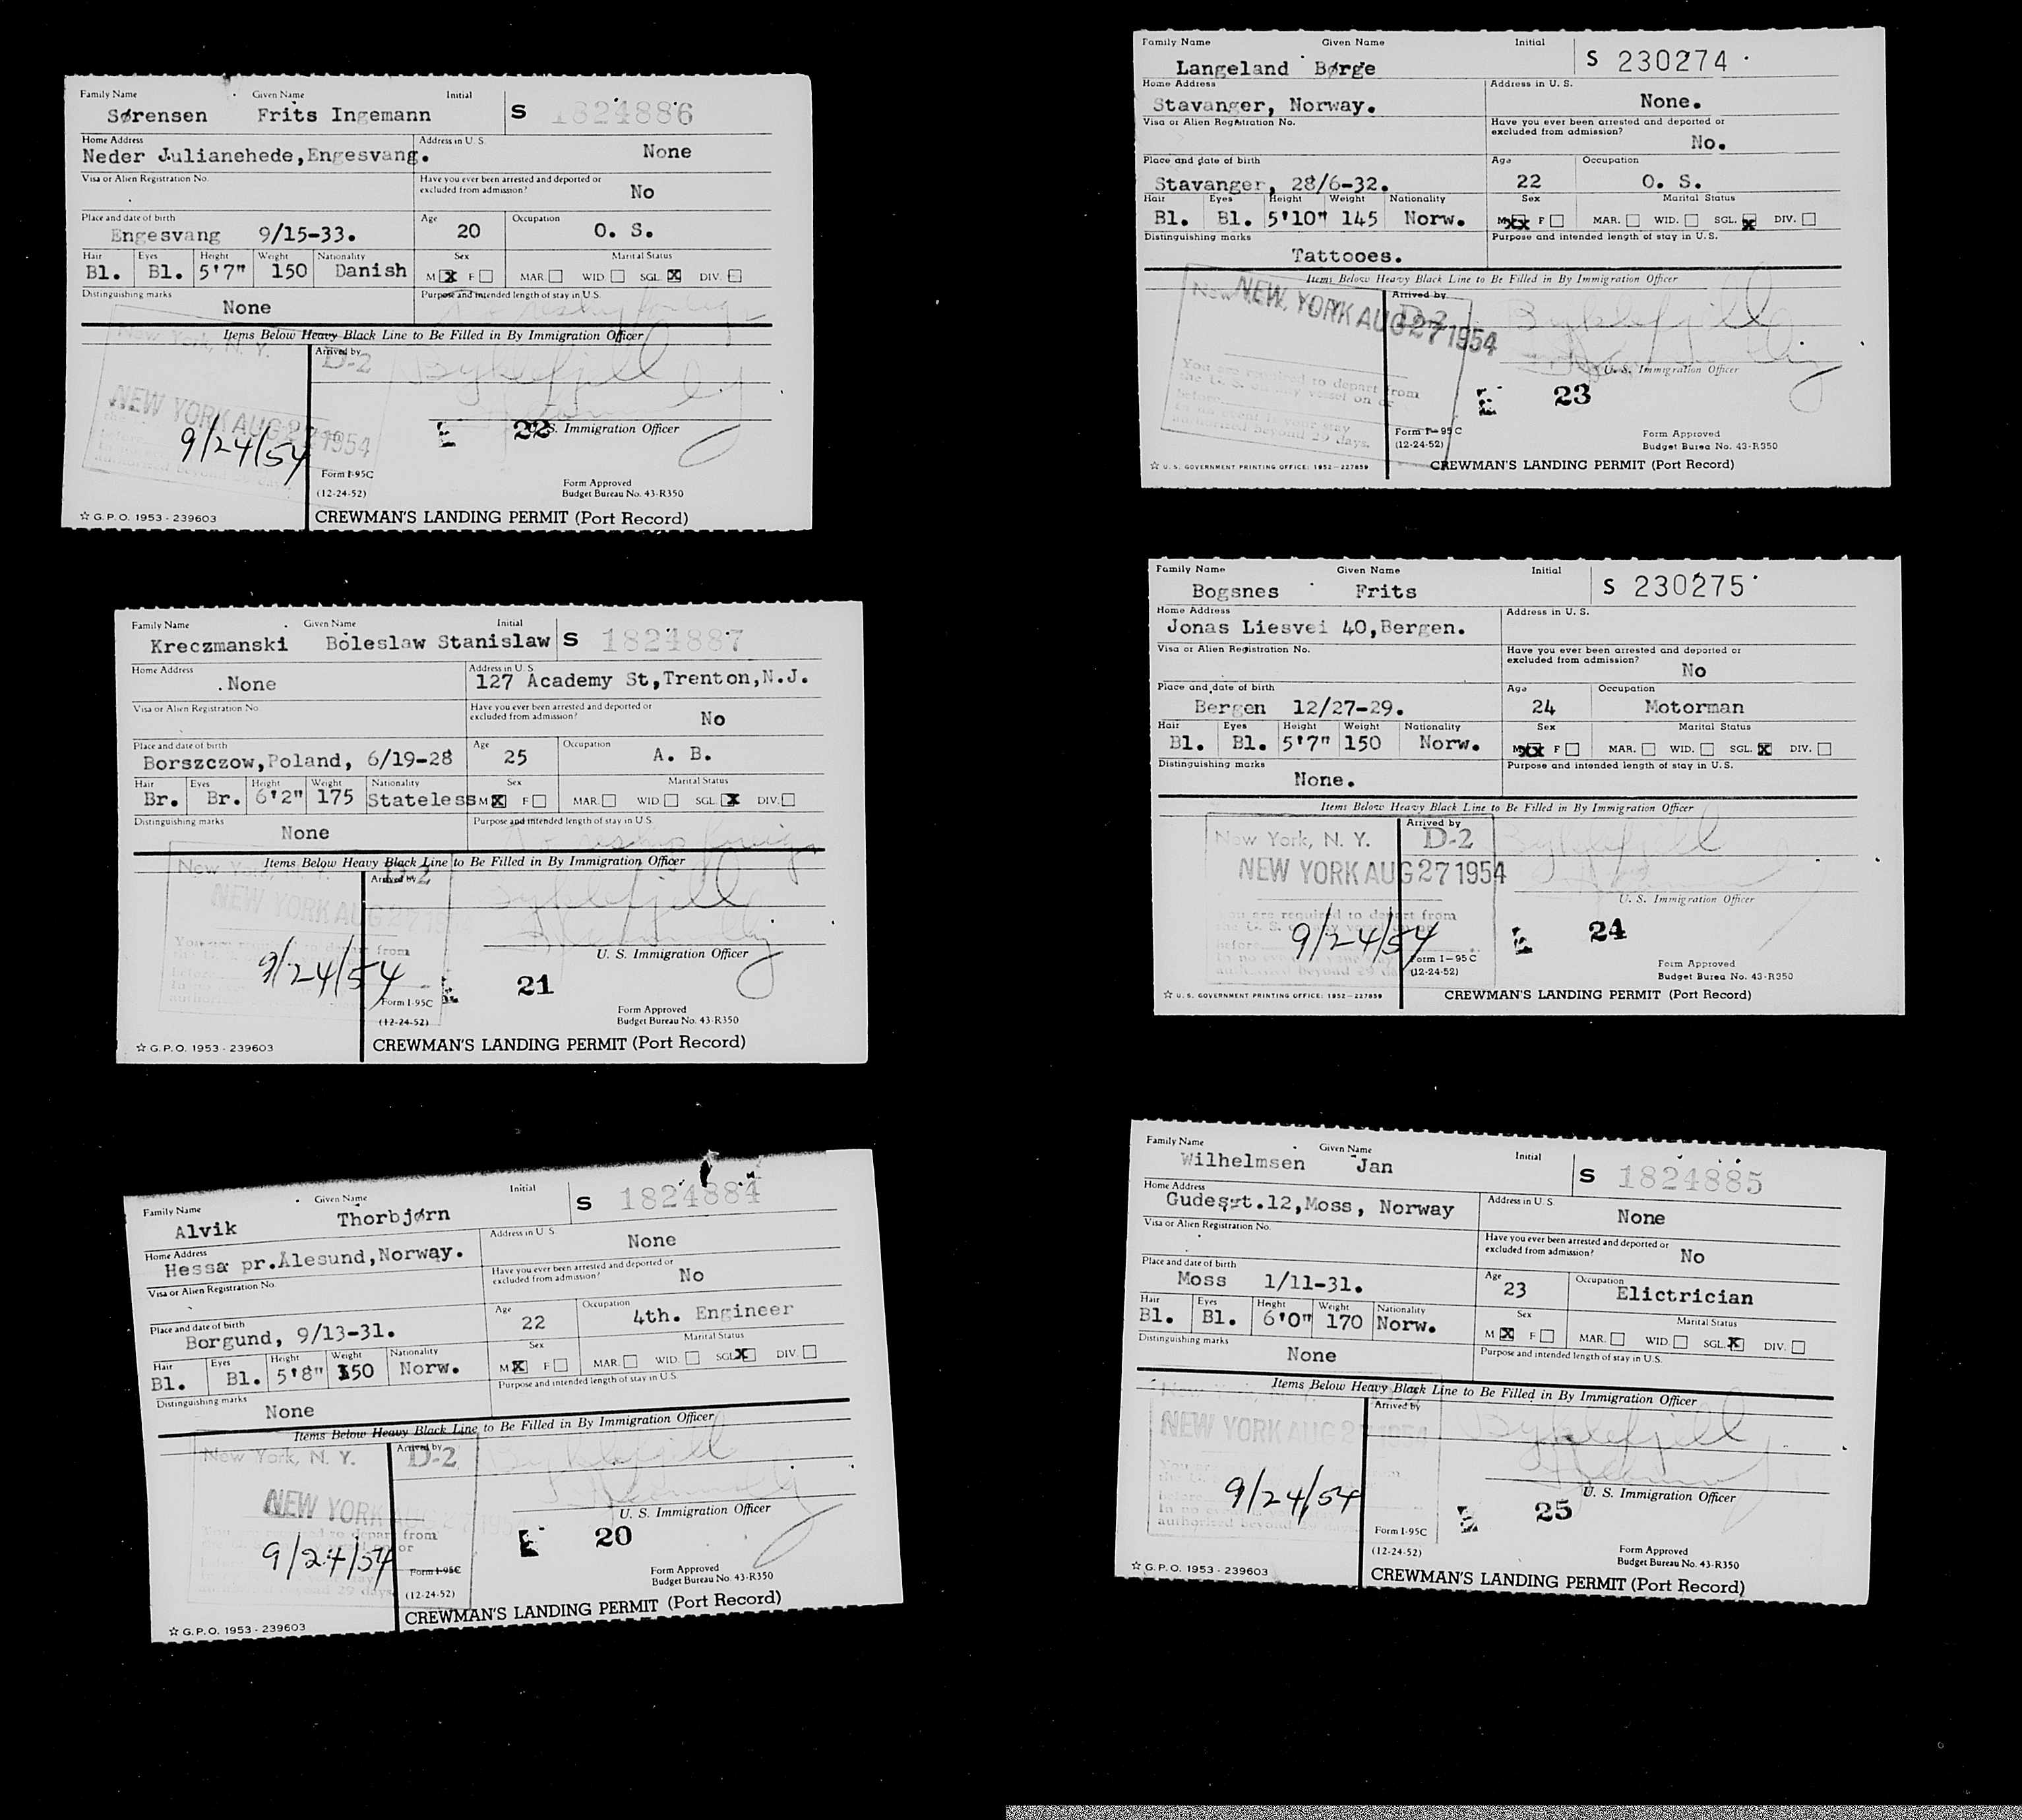 Family Name Given Name Initial
Sørensen Frits Ingemann S 1824886
Home Address Address in U. S.
Neder Julianehede,Engesvang. None
Visa or Alien Registration No. Have you ever been arrested and deported or excluded from admission?
No
Place and date of birth Age Occupation
Engesvang 9/15-33. 20 O. S.
Hair Eyes Height Weight Nationality Sex Marital Status
Bl. Bl. 5'7" 150 Danish M X F MAR. WID. SGL. X DIV.
Distinguishing marks Purpose and intended length of stay in U.S.
None
Items Below Heavy Black Line to Be Filled in By Immigration Officer
New York, N. Y. Arrived by
D-2 Byklefjell
NEW YORK AUG 27 1954
9/24/54
E 22 U. S. Immigration Officer
Form I-95C
(12-24-52)
Form Approved
Budget Bureau No. 43-R350
☆ G.P.O. 1953 - 239603 CREWMAN'S LANDING PERMIT (Port Record)
Family Name Given Name Initial
Kreczmanski Boleslaw Stanislaw S 1824887
Home Address Address in U. S.
.None 127 Academy St,Trenton,N.J.
Visa or Alien Registration No. Have you ever been arrested and deported or excluded from admission?
No
Place and date of birth Age Occupation
Borszczow,Poland, 6/19-28 25 A. B.
Hair Eyes Height Weight Nationality Sex Marital Status
Br. Br. 6'2" 175 Stateless M X F MAR. WID. SGL. X DIV.
Distinguishing marks Purpose and intended length of stay in U.S.
None
Items Below Heavy Black Line to Be Filled in By Immigration Officer
New York, N. Y. Arrived by
D-2 Byklefjell
NEW YORK AUG 27 1954
You are required to depart from
9/24/54
U. S. Immigration Officer
E 21
Form I-95C
(12-24-52)
Form Approved
Budget Bureau No. 43-R350
☆ G.P.O. 1953 - 239603 CREWMAN'S LANDING PERMIT (Port Record)
Family Name Given Name Initial
Alvik Thorbjørn S 1824884
Home Address Address in U. S.
Hessa pr.Ålesund,Norway. None
Visa or Alien Registration No. Have you ever been arrested and deported or excluded from admission?
No
Place and date of birth Age Occupation
Borgund, 9/13-31. 22 4th. Engineer
Hair Eyes Height Weight Nationality Sex Marital Status
Bl. Bl. 5'8" 150 Norw. M X F MAR. WID. SGL. X DIV.
Distinguishing marks Purpose and intended length of stay in U.S.
None
Items Below Heavy Black Line to Be Filled in By Immigration Officer
New York, N. Y. Arrived by
D-2 Byklefjell
NEW YORK AUG 27 1954
9/24/54
U. S. Immigration Officer
E 20
Form I-95C
(12-24-52)
Form Approved
Budget Bureau No. 43-R350
☆ G.P.O. 1953 - 239603 CREWMAN'S LANDING PERMIT (Port Record)
Family Name Given Name Initial
Langeland Børge S 230274
Home Address Address in U. S.
Stavanger, Norway. None.
Visa or Alien Registration No. Have you ever been arrested and deported or excluded from admission?
No.
Place and date of birth Age Occupation
Stavanger, 28/6-32. 22 O. S.
Hair Eyes Height Weight Nationality Sex Marital Status
Bl. Bl. 5'10" 145 Norw. M XX F MAR. WID. SGL. X DIV.
Distinguishing marks Purpose and intended length of stay in U.S.
Tattooes.
Items Below Heavy Black Line to Be Filled in By Immigration Officer
New NEW YORK AUG 27 1954 Arrived by
D-2 Byklefjell
You are required to depart from
the U. S. on any vessel on or
before
In no event is your stay
authorized beyond 29 days.
U. S. Immigration Officer
E 23
Form I-95C
(12-24-52)
Form Approved
Budget Burea No. 43-R350
☆ U. S. GOVERNMENT PRINTING OFFICE: 1952-227859 CREWMAN'S LANDING PERMIT (Port Record)
Family Name Given Name Initial
Bogsnes Frits S 230275
Home Address Address in U. S.
Jonas Liesvei 40,Bergen.
Visa or Alien Registration No. Have you ever been arrested and deported or excluded from admission?
No
Place and date of birth Age Occupation
Bergen 12/27-29. 24 Motorman
Hair Eyes Height Weight Nationality Sex Marital Status
Bl. Bl. 5'7" 150 Norw. M XX F MAR. WID. SGL. X DIV.
Distinguishing marks Purpose and intended length of stay in U.S.
None.
Items Below Heavy Black Line to Be Filled in By Immigration Officer
New York, N. Y. Arrived by
D-2 Byklefjell
NEW YORK AUG 27 1954
You are required to depart from
U. S. Immigration Officer
9/24/54
E 24
Form I-95C
(12-24-52)
Form Approved
Budget Burea No. 43-R350
☆ U. S. GOVERNMENT PRINTING OFFICE: 1952-227859 CREWMAN'S LANDING PERMIT (Port Record)
Family Name Given Name Initial
Wilhelmsen Jan S 1824885
Home Address Address in U. S.
Gudesgt.12,Moss, Norway None
Visa or Alien Registration No. Have you ever been arrested and deported or excluded from admission?
No
Place and date of birth Age Occupation
Moss 1/11-31. 23 Elictrician
Hair Eyes Height Weight Nationality Sex Marital Status
Bl. Bl. 6'0" 170 Norw. M X F MAR. WID. SGL. X DIV.
Distinguishing marks Purpose and intended length of stay in U.S.
None
Items Below Heavy Black Line to Be Filled in By Immigration Officer
Arrived by
Byklefjell
NEW YORK AUG 27 1954
9/24/54
U. S. Immigration Officer
E 25
Form I-95C
(12-24-52)
Form Approved
Budget Bureau No. 43-R350
☆ G.P.O. 1953 - 239603 CREWMAN'S LANDING PERMIT (Port Record)